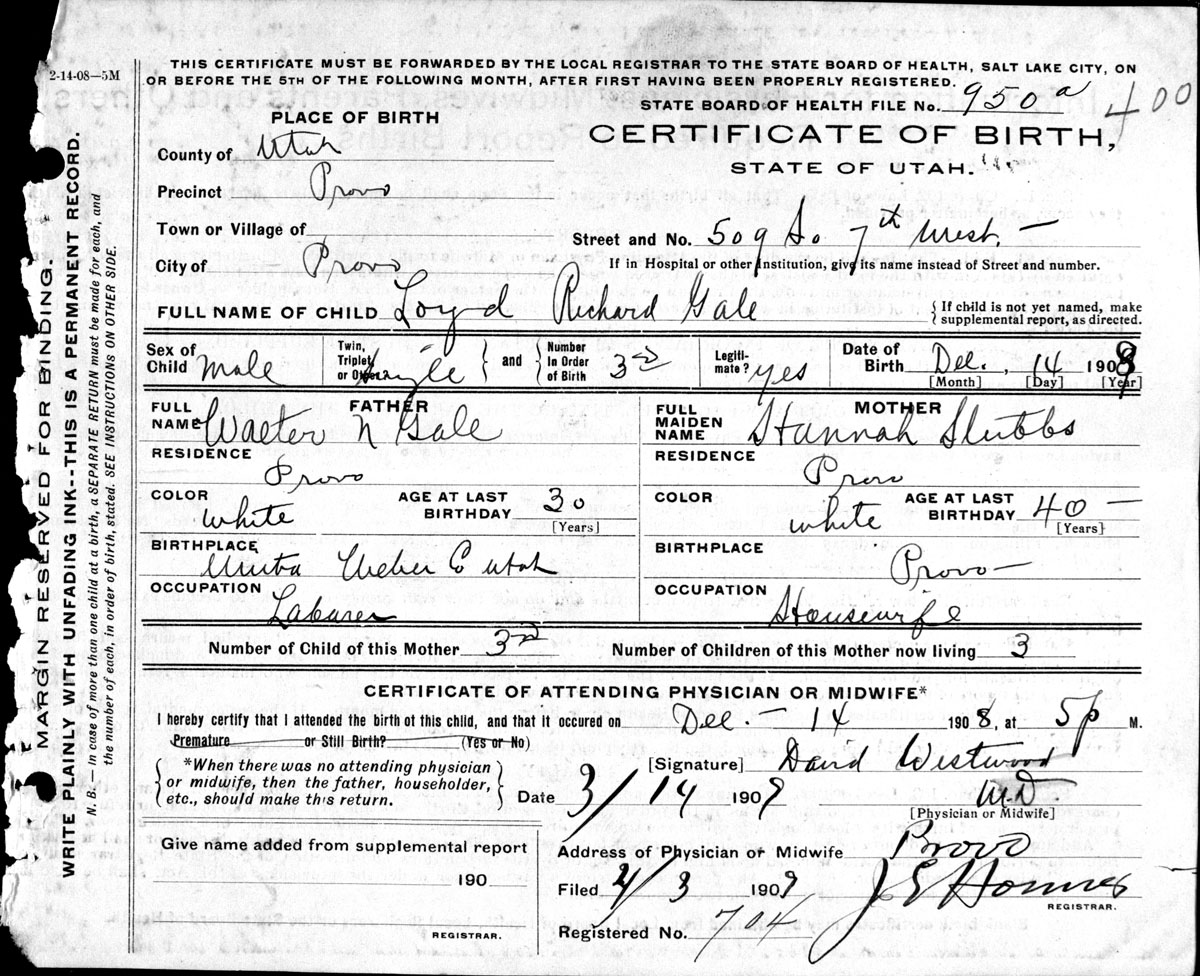 2-14-08—5M
THIS CERTIFICATE MUST BE FORWARDED BY THE LOCAL REGISTRAR TO THE STATE BOARD OF HEALTH, SALT LAKE CITY, ON
OR BEFORE THE 5TH OF THE FOLLOWING MONTH, AFTER FIRST HAVING BEEN PROPERLY REGISTERED.
STATE BOARD OF HEALTH FILE No. 950a 400
PLACE OF BIRTH
CERTIFICATE OF BIRTH,
STATE OF UTAH.
County of Utah
Precinct Provo
Town or Village of
Street and No. 509 So 7th West. —
City of Provo
If in Hospital or other institution, give its name instead of Street and number.
FULL NAME OF CHILD Loyd Richard Gale
{ If child is not yet named, make
supplemental report, as directed.
Sex of Child Male
Twin, Triplet, or Other Single } and { Number In Order of Birth 3rd
Legitimate? yes
Date of Birth Dec., 14 1908
[Month] [Day] [Year]
FATHER
FULL NAME Walter N Gale
MOTHER
FULL MAIDEN NAME Hannah Stubbs
RESIDENCE Provo
RESIDENCE Provo
COLOR White
AGE AT LAST BIRTHDAY 30 [Years]
COLOR White
AGE AT LAST BIRTHDAY 40 — [Years]
BIRTHPLACE Uinta Weber Co Utah
BIRTHPLACE Provo —
OCCUPATION Laborer
OCCUPATION Housewife
Number of Child of this Mother 3rd
Number of Children of this Mother now living 3
CERTIFICATE OF ATTENDING PHYSICIAN OR MIDWIFE*
I hereby certify that I attended the birth of this child, and that it occured on Dec. — 14 1908, at 5p M.
Premature or Still Birth? (Yes or No)
{ *When there was no attending physician
or midwife, then the father, householder,
etc., should make this return. }
[Signature] David Westwood
Date 3/14 1909
M.D.
[Physician or Midwife]
Give name added from supplemental report
190
REGISTRAR.
Address of Physician or Midwife Provo
Filed 4/3 1909 J E Homer
REGISTRAR.
Registered No. 704
MARGIN RESERVED FOR BINDING.
WRITE PLAINLY WITH UNFADING INK--THIS IS A PERMANENT RECORD.
N. B.—In case of more than one child at a birth, a SEPARATE RETURN must be made for each, and
the number of each, in order of birth, stated. SEE INSTRUCTIONS ON OTHER SIDE.